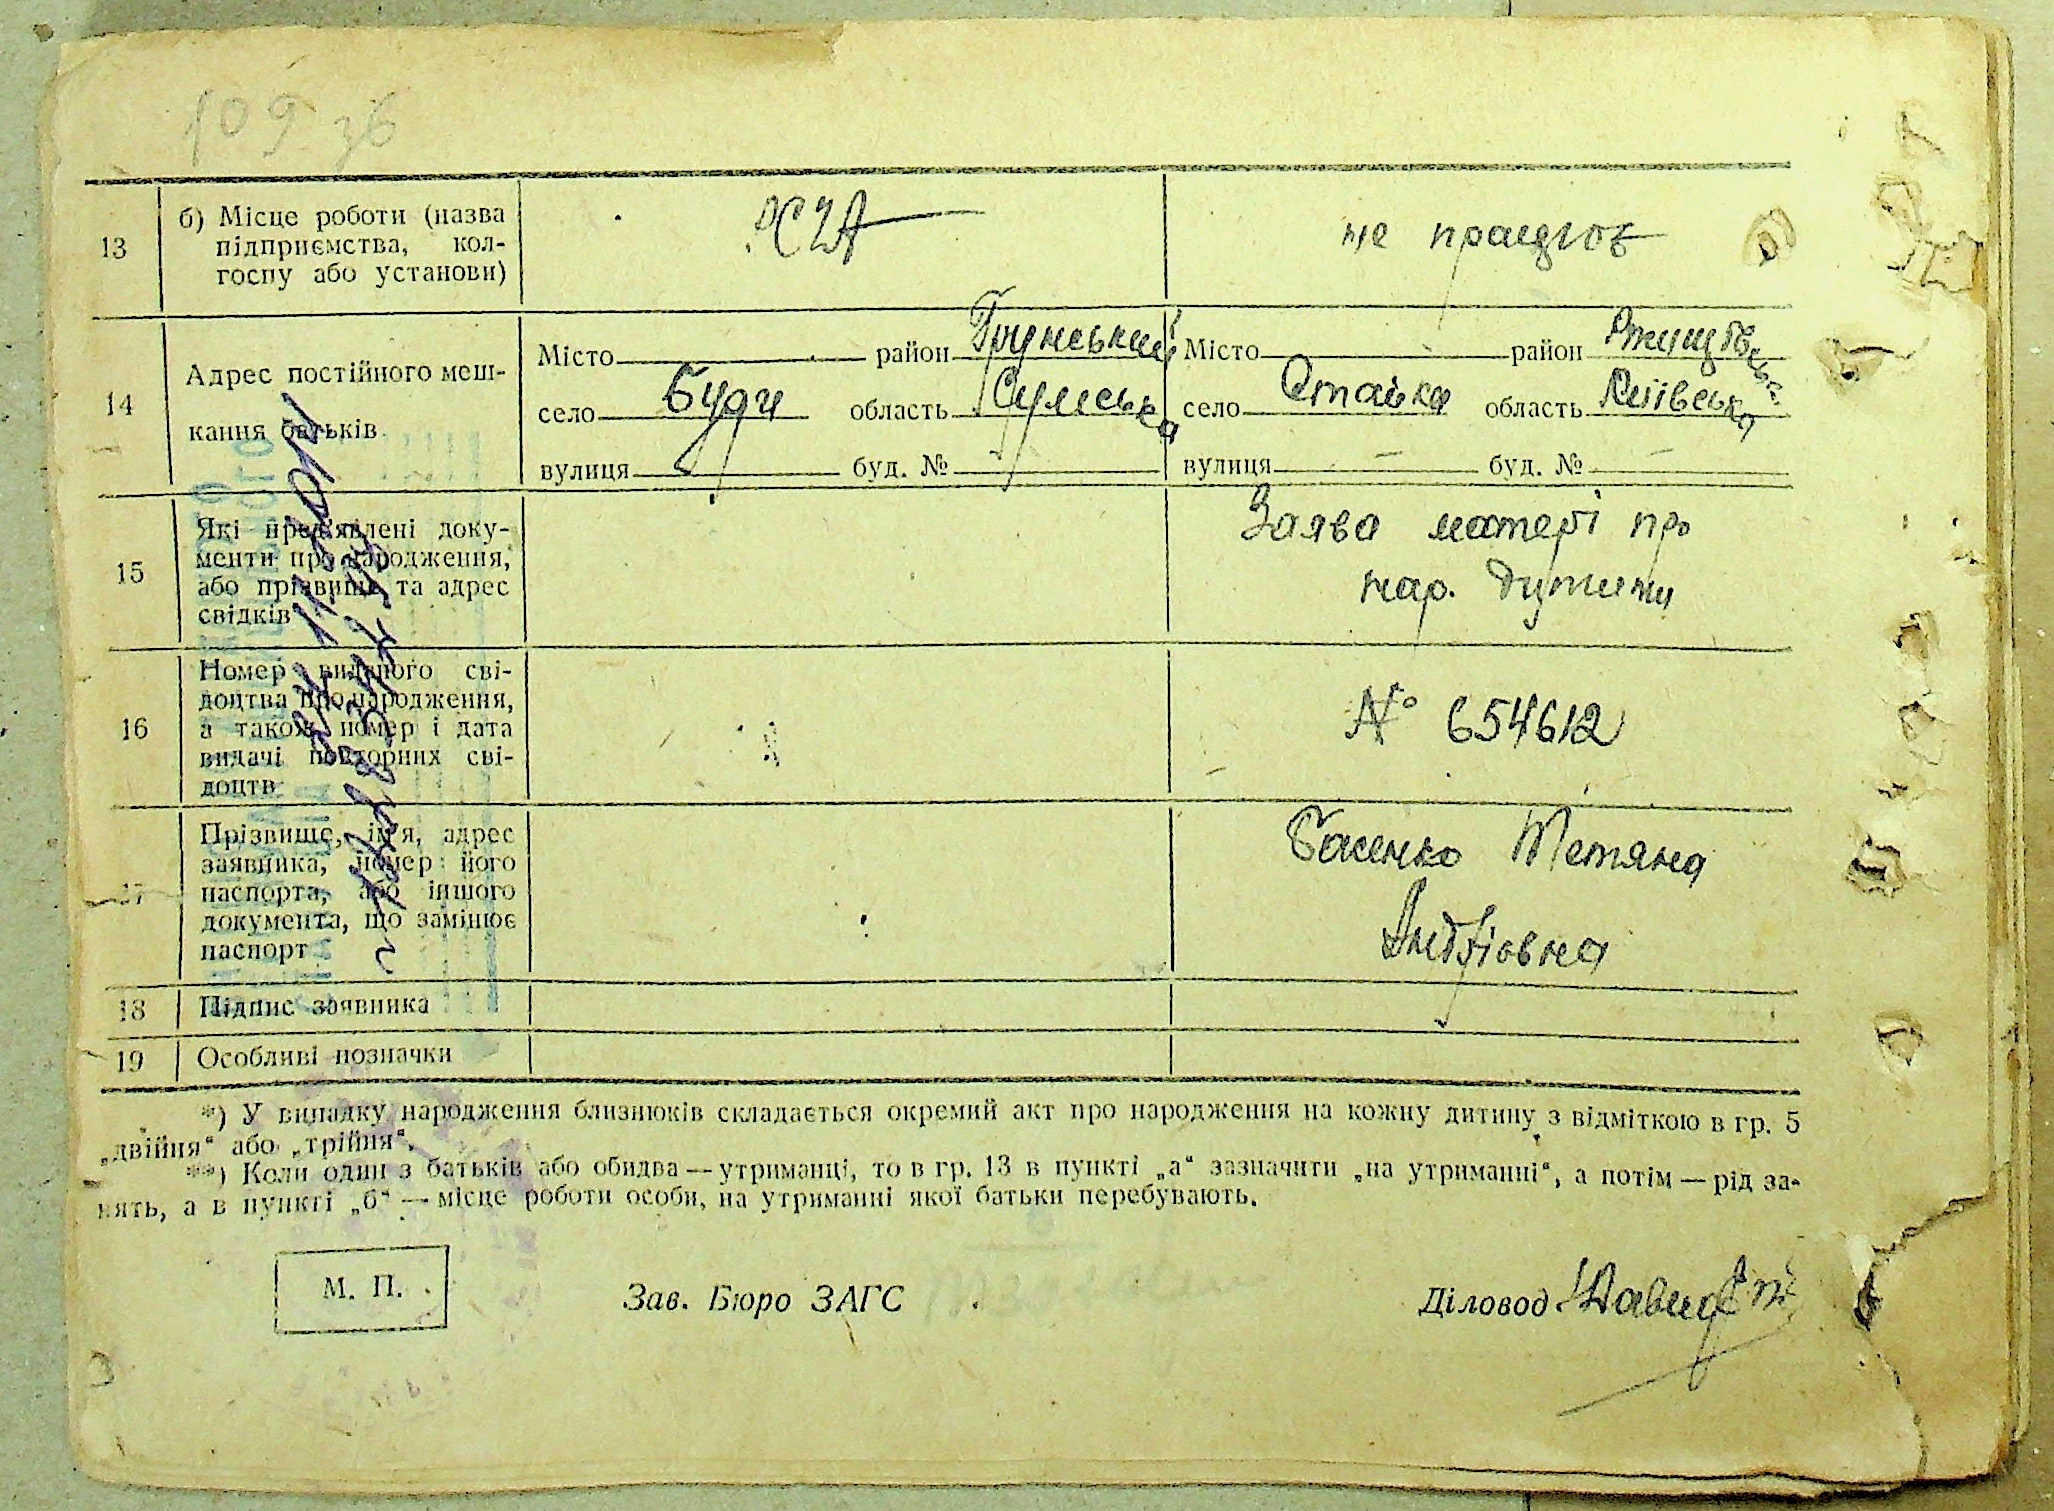 109 зв
13
б) Місце роботи (назва
підприємства, кол-
госпу або установи)
не працює
14
Адрес постійного меш-
кання батьків
Місто район Грунський
село Буди область Сумська
вулиця буд. №
Місто район Ржищівськ.
село Стайки область Київська
вулиця — буд. № —
15
Які пред'явлені доку-
менти про народження,
або прізвище та адрес
свідків
Заява матері про
нар. дитини
16
Номер виданого сві-
доцтва про народження,
а також номер і дата
видачі повторних сві-
доцтв
№ 654612
17
Прізвище, ім'я, адрес
заявника, номер його
паспорта, або іншого
документа, що замінює
паспорт
Тетяна
Андріовна
18
Підпис заявника
19
Особливі позначки
*) У випадку народження близнюків складається окремий акт про народження на кожну дитину з відміткою в гр. 5
„двійня“ або „трійня“.
**) Коли один з батьків або обидва — утриманці, то в гр. 13 в пункті „а“ зазначити „на утриманні“, а потім — рід за-
нять, а в пункті „б“ — місце роботи особи, на утриманні якої батьки перебувають.
М. П.
Зав. Бюро ЗАГС
Діловод